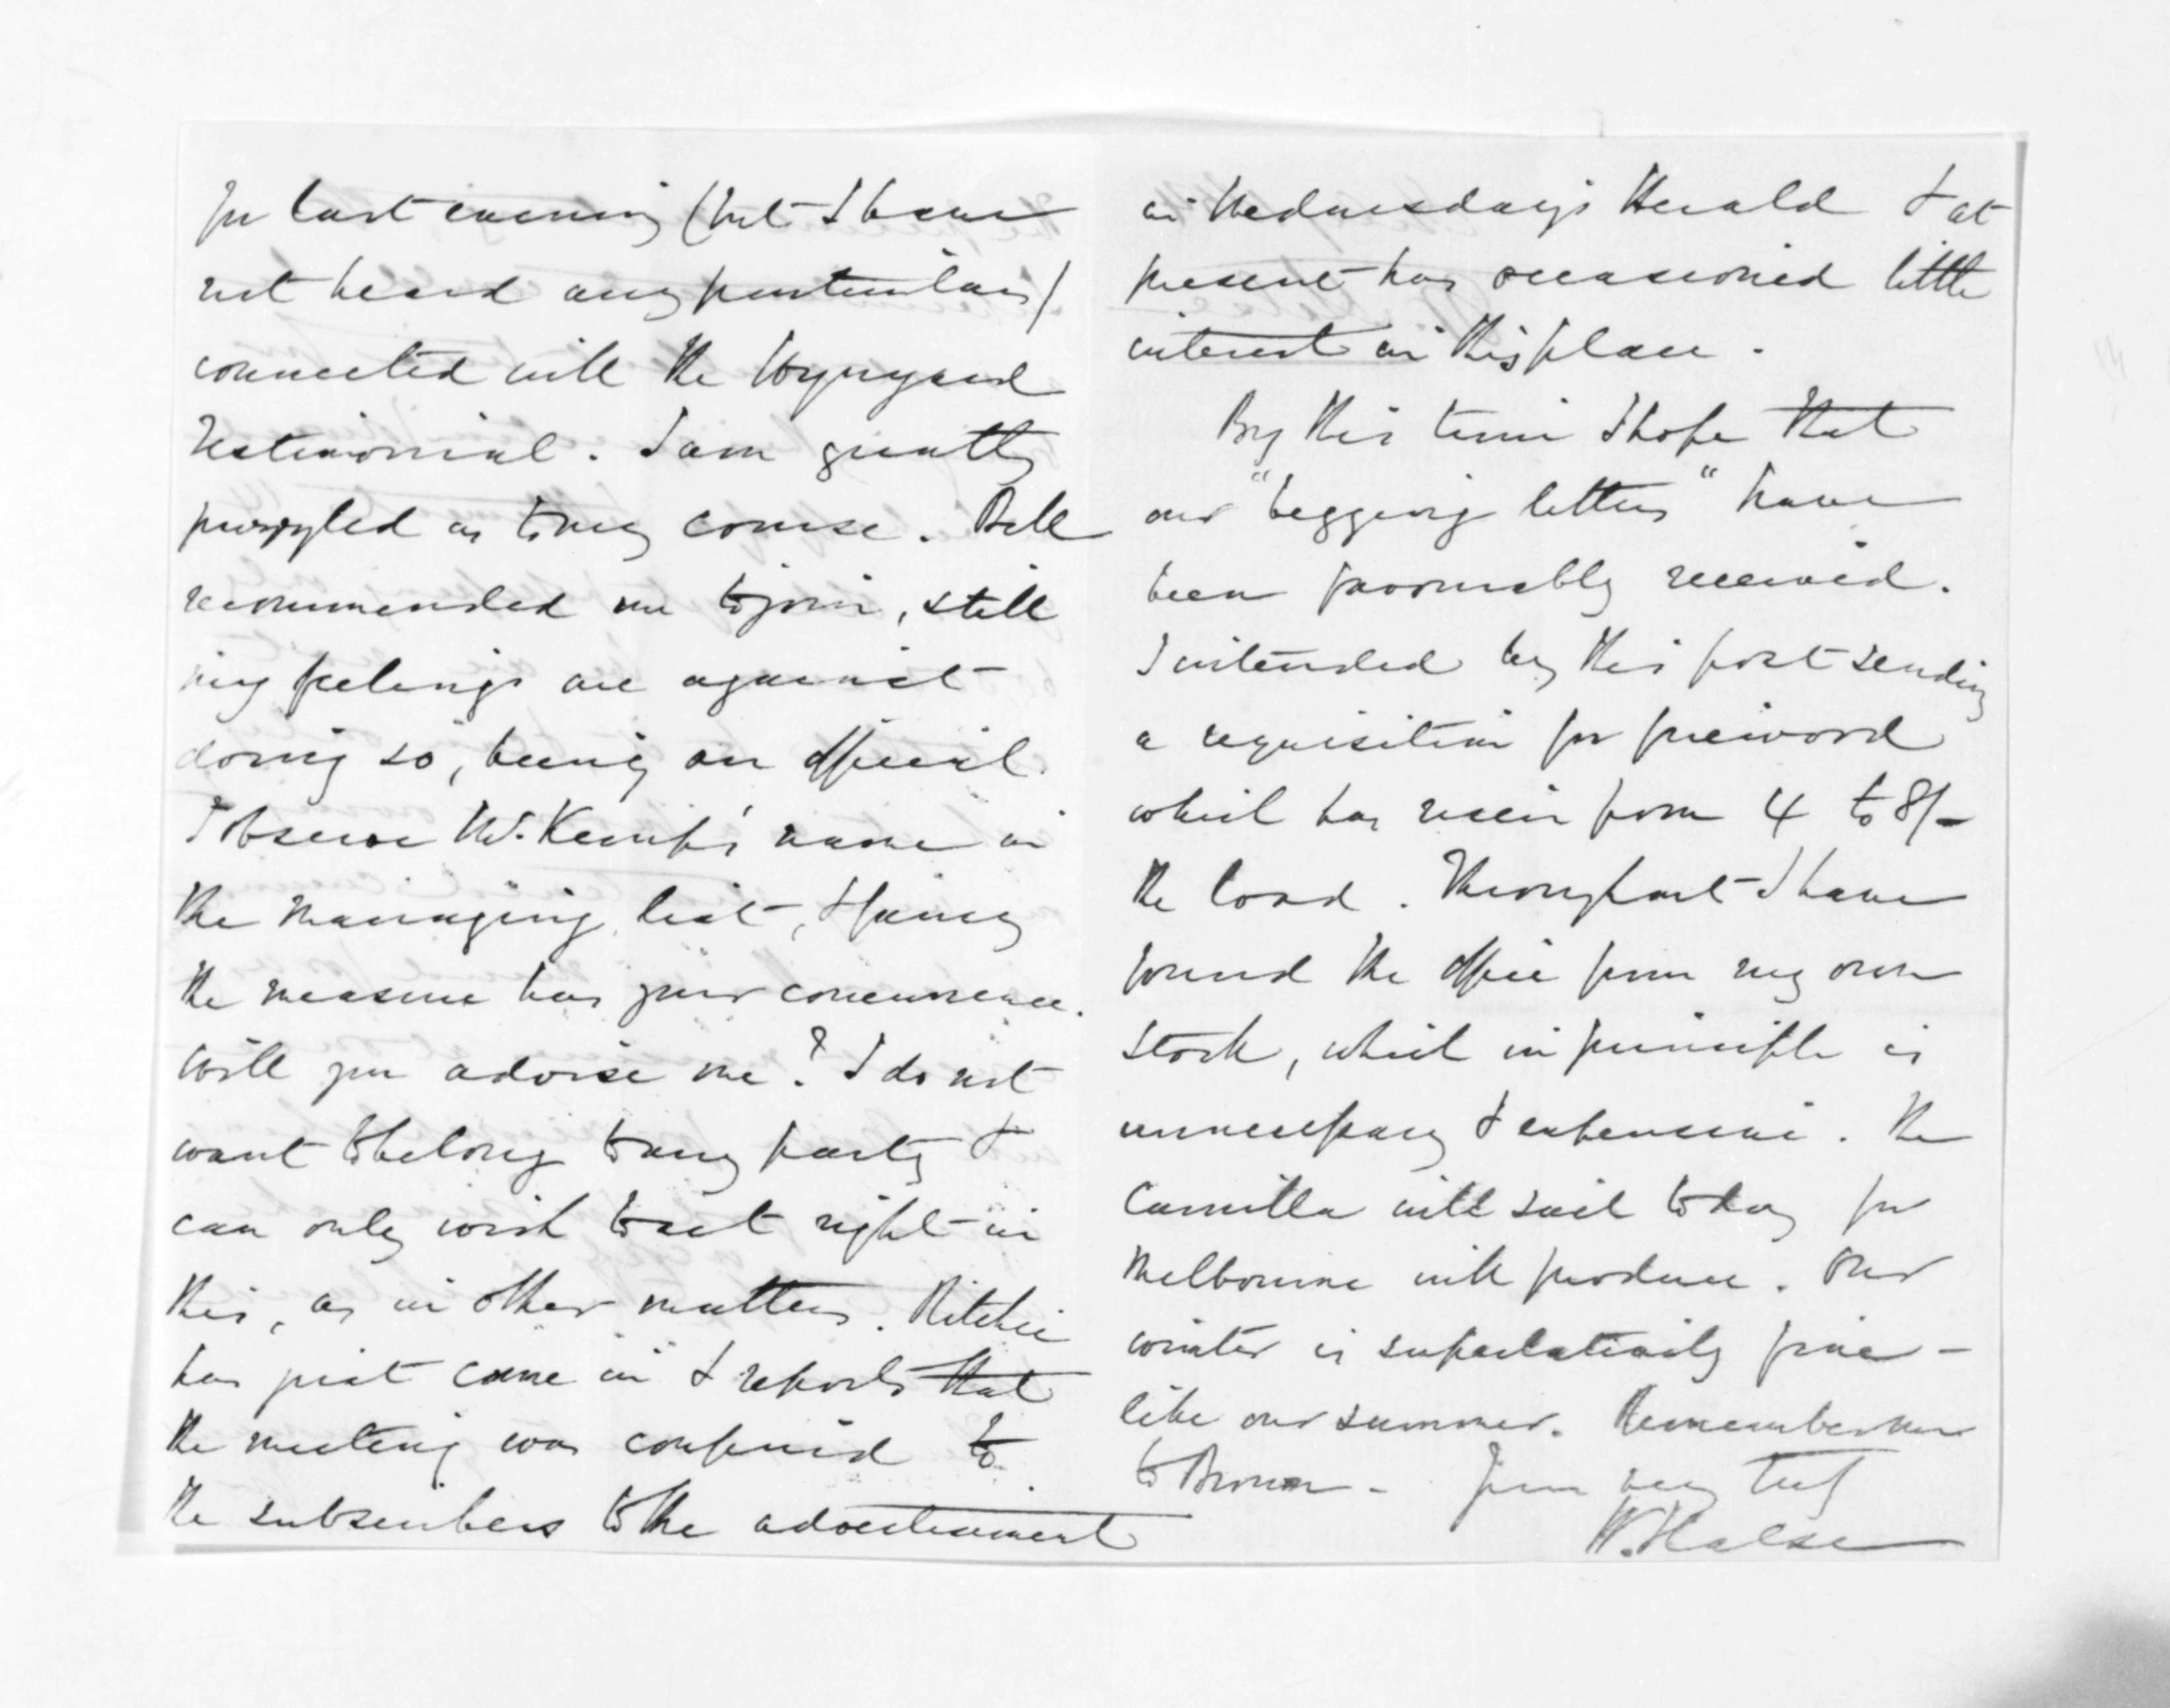 for last evening (but I have
not heard any particulars)
connected with the Wynyard
Testimonial. I am greatly
puzzled as to my course. Bell
recommended me to join, still
my feelings are against
doing so, being an official.
I observe Mr. Kemp's name in
the managing list, & fancy
the measure has your concurrence.
Will you advise me? I do not
want to belong to any party &
can only wish to act right in
this, as in other matters. Ritchie
has just come in & reports that
the meeting was confined to
the subscribers to the advertisement
in Wednesday's Herald & at
present has occasioned little
interest in this place.
By this time I hope that
our "begging letters" have
been favourably received.
I intended by this post sending
a requisition for firewood
which has risen from 4 to 8/-
the load. Throughout I have
found the office from my own
stock, which in principle is
unnecessary & expensive. The
Camilla will sail today for
Melbourne with produce. Our
winter is superlatively fine -
like our summer. Remember me
to Brown - Yours very truly
W. Halse